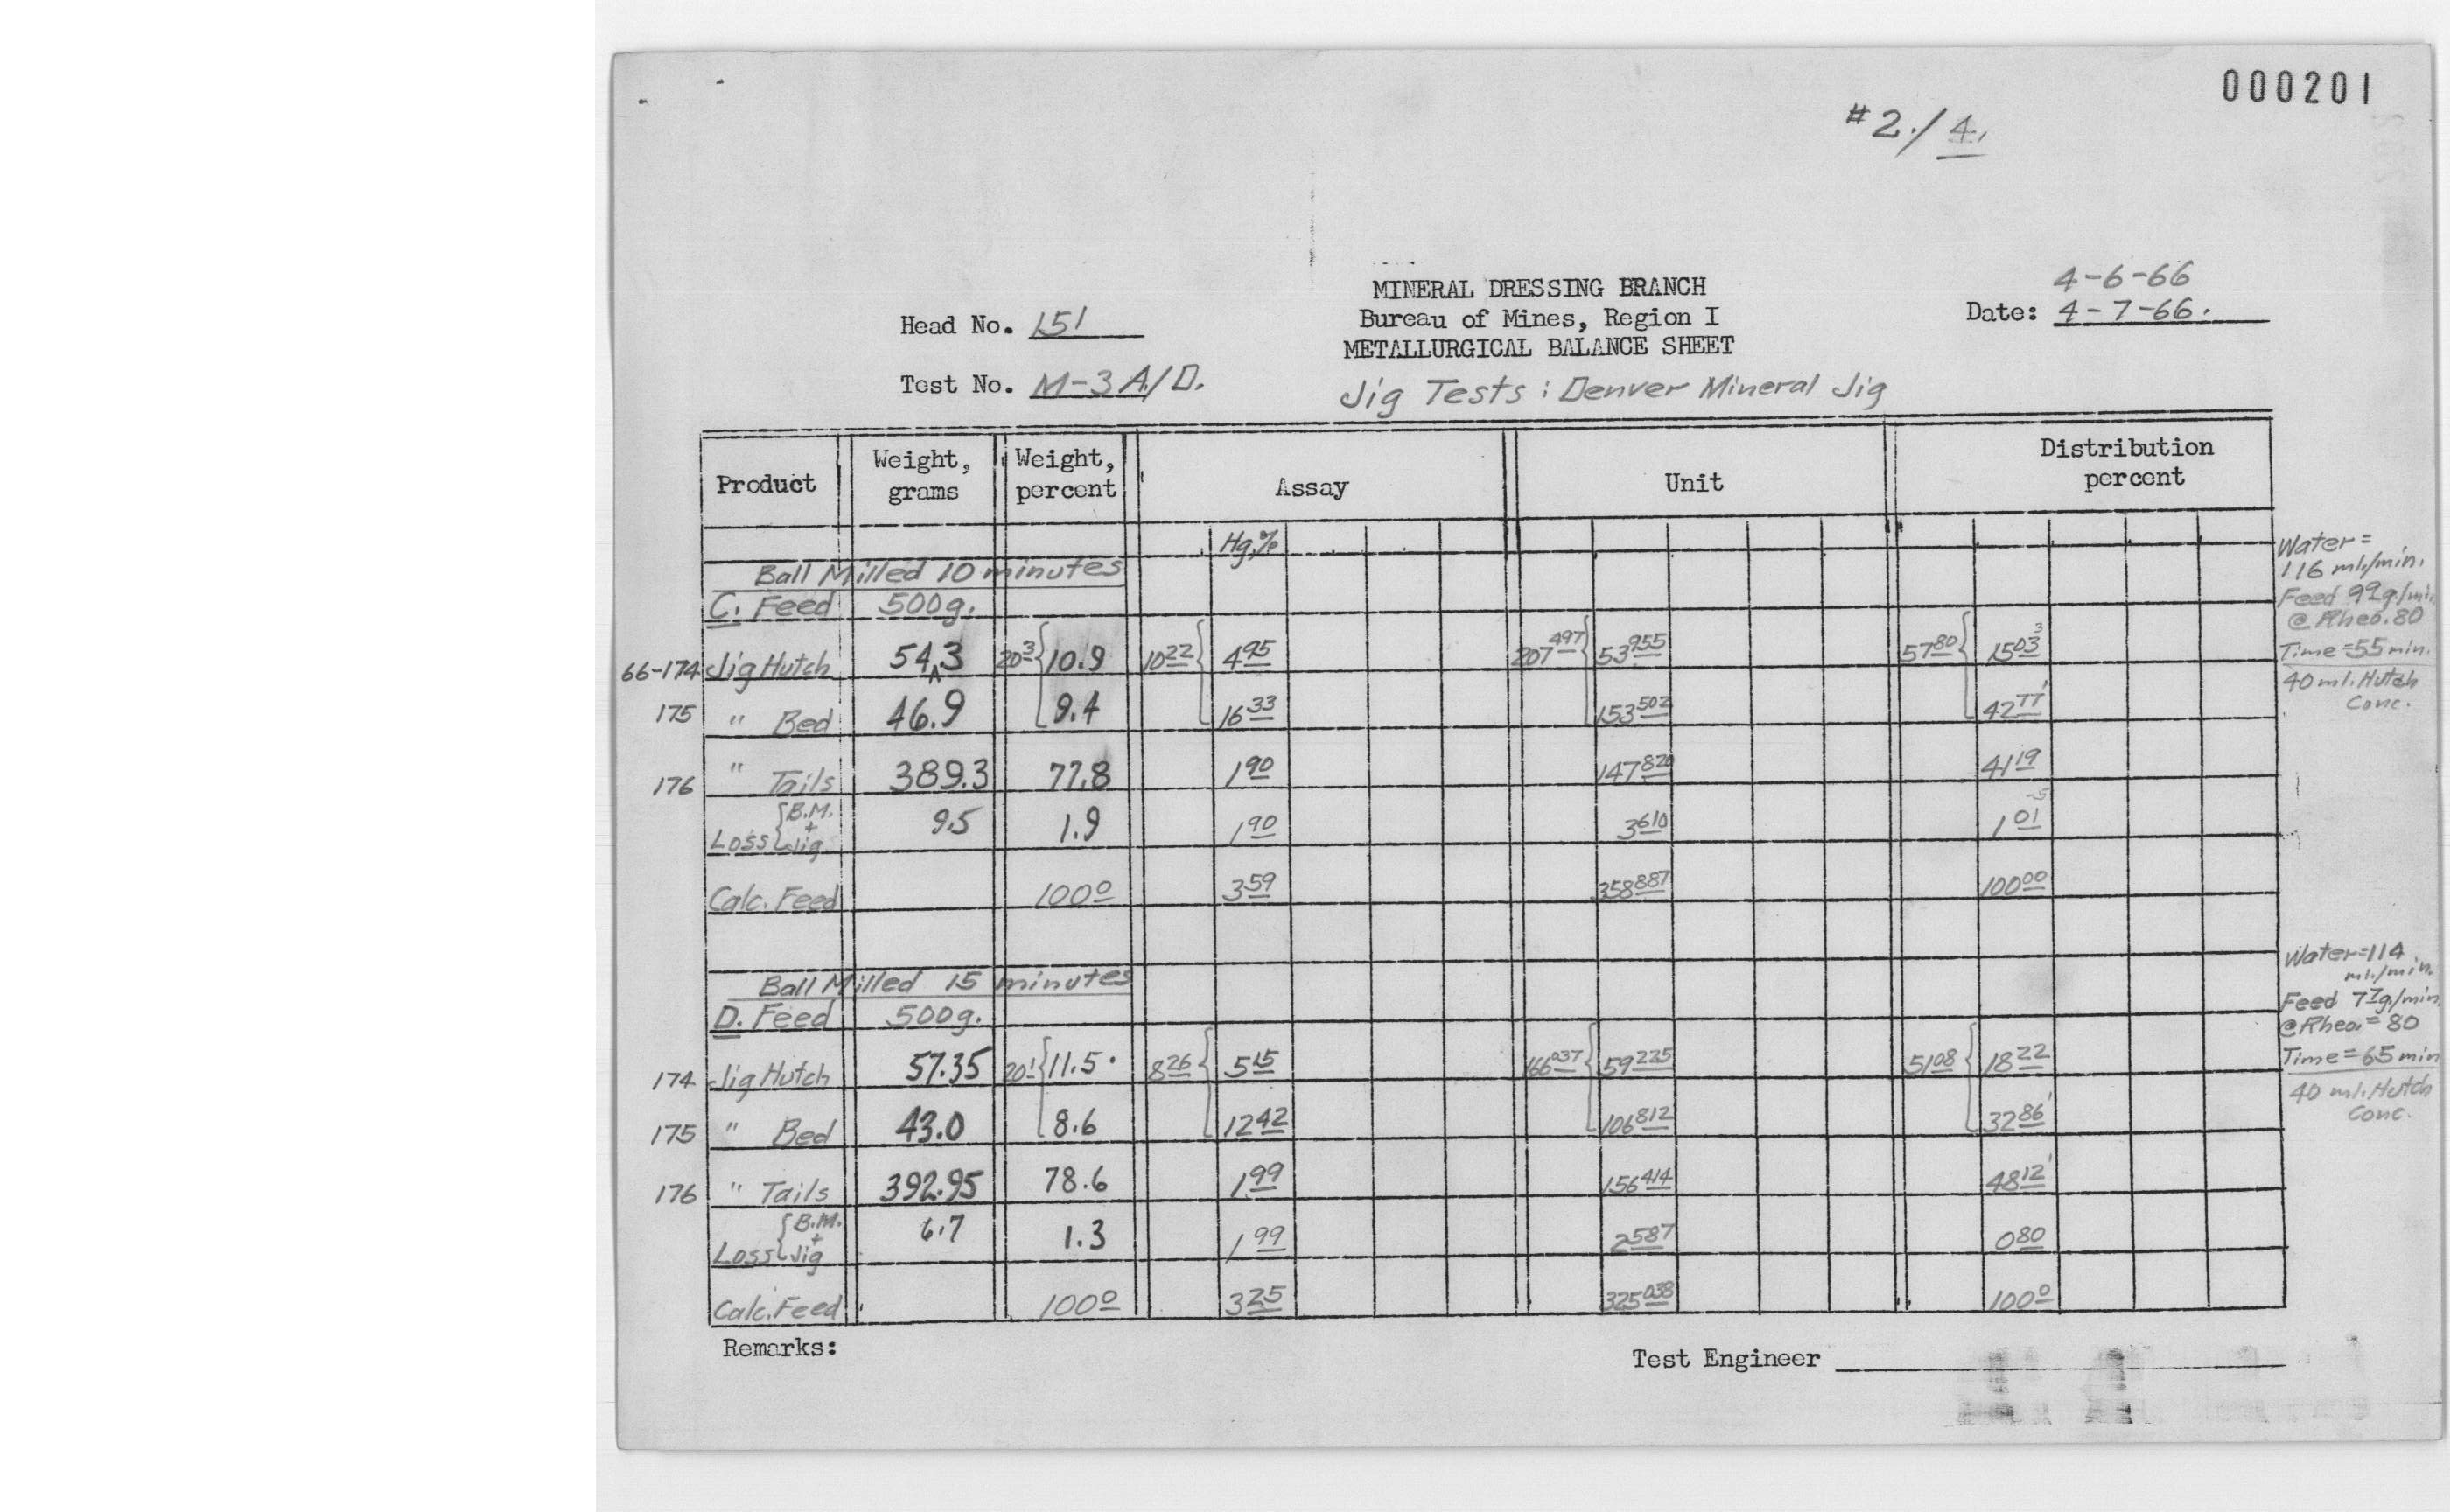 000201
#2./4.
MINERAL DRESSING BRANCH
Bureau of Mines, Region I
METALLURGICAL BALANCE SHEET
Head No. 151
Test No. M-3 A/D.
4-6-66
Date: 4-7-66.
Jig Tests: Denver Mineral Jig
Product Weight, grams Weight, percent Assay Unit Distribution percent
Hg.%
Ball Milled 10 minutes
C. Feed 500g.
66-174 Jig Hutch 54.3 20.3 { 10.9 10.22 { 4.95 207.497 { 53.955 57.80 { 15.03 3
175 " Bed 46.9 9.4 16.33 153.502 42.77 1
176 " Tails 389.3 77.8 1.90 147.820 41.19
Loss { B.M. + Jig. 9.5 1.9 1.90 3.610 1.01
Calc. Feed 100.0 3.59 358.887 100.00
Water =
116 ml./min.
Feed 9.2g./min
@ Rheo. 80
Time = 55 min.
40 ml. Hutch
Conc.
Ball Milled 15 minutes
D. Feed 500g.
174 Jig Hutch 57.35 20.1 { 11.5 8.26 { 5.15 166.037 { 59.225 51.08 { 18.22
175 " Bed 43.0 8.6 12.42 106.812 32.86 1
176 " Tails 392.95 78.6 1.99 156.414 48.12 1
Loss { B.M. + Jig 6.7 1.3 1.99 2.587 0.80
Calc. Feed 100.0 3.25 325.038 100.0
Water=114
ml./min.
Feed 7.7g/min
@ Rheo. = 80
Time = 65 min
40 ml. Hutch
Conc.
Remarks:
Test Engineer